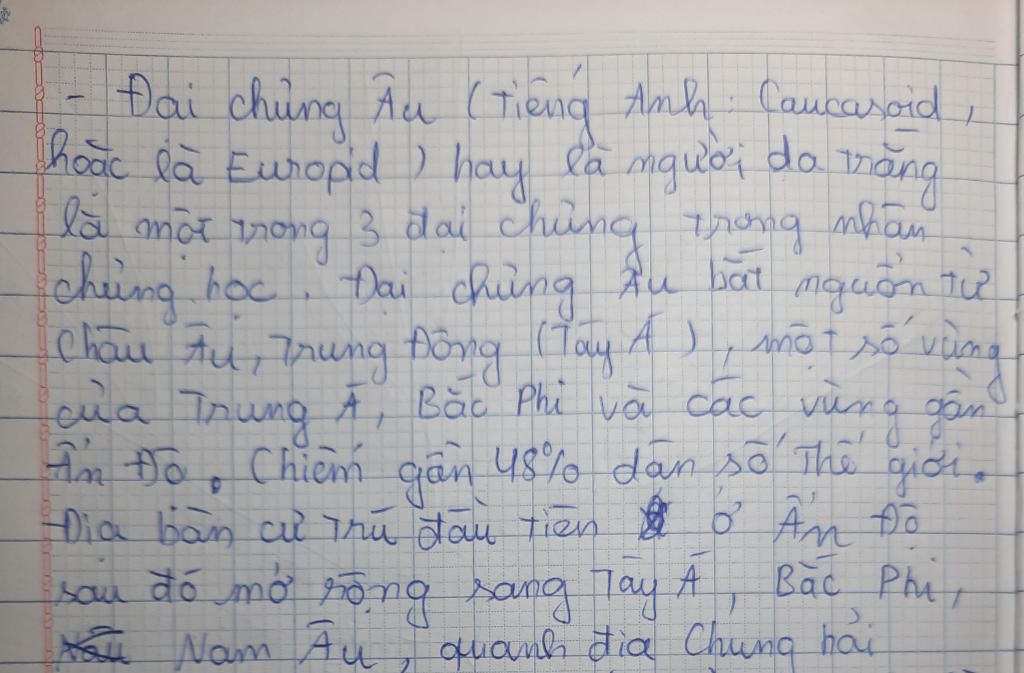 - Đại chủng Âu (Tiếng Anh: Caucasoid,
hoặc là Europid) hay là người da trắng
là một trong 3 đại chủng trong nhân
chủng học. Đại chủng Âu bắt nguồn từ
Châu Âu, Trung Đông (Tây Á), một số vùng
của Trung Á, Bắc Phi và các vùng gần
Ấn Độ. Chiếm gần 48% dân số Thế giới.
Địa bàn cư trú đầu tiên ở Ấn Độ
sau đó mở rộng sang Tây Á, Bắc Phi,
Nam Âu, quanh địa Chung hải